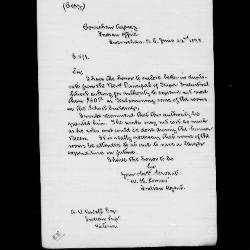 (Copy)
Agency
Indian Office
June 22nd
Sir,
I have the honor to enclose letter in duplicate
from the Principal of Industrial
School asking for authority to expend not more
than $60.00 in of the rooms
in the School buildings.
I would recommend that this authority be
granted him. The work may not cost as much
as he asks and could be done during the Summer
Recess. It is really necessary that some of the rooms
be attended to as to save a larger
expenditure in future.
I have the honor to be
Sir
Your obdt. Servant
Indian Agent.
A. W. Vowell Esq
Indian Supt
Victoria